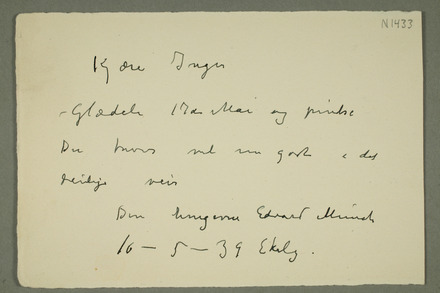 N 1433
Kjære Inger
Glædelig 17de Mai og pintse
Du har vel godt i det
deilige veir
Din hengivne Edvard Munch
16 – 5 – 39 Ekely.